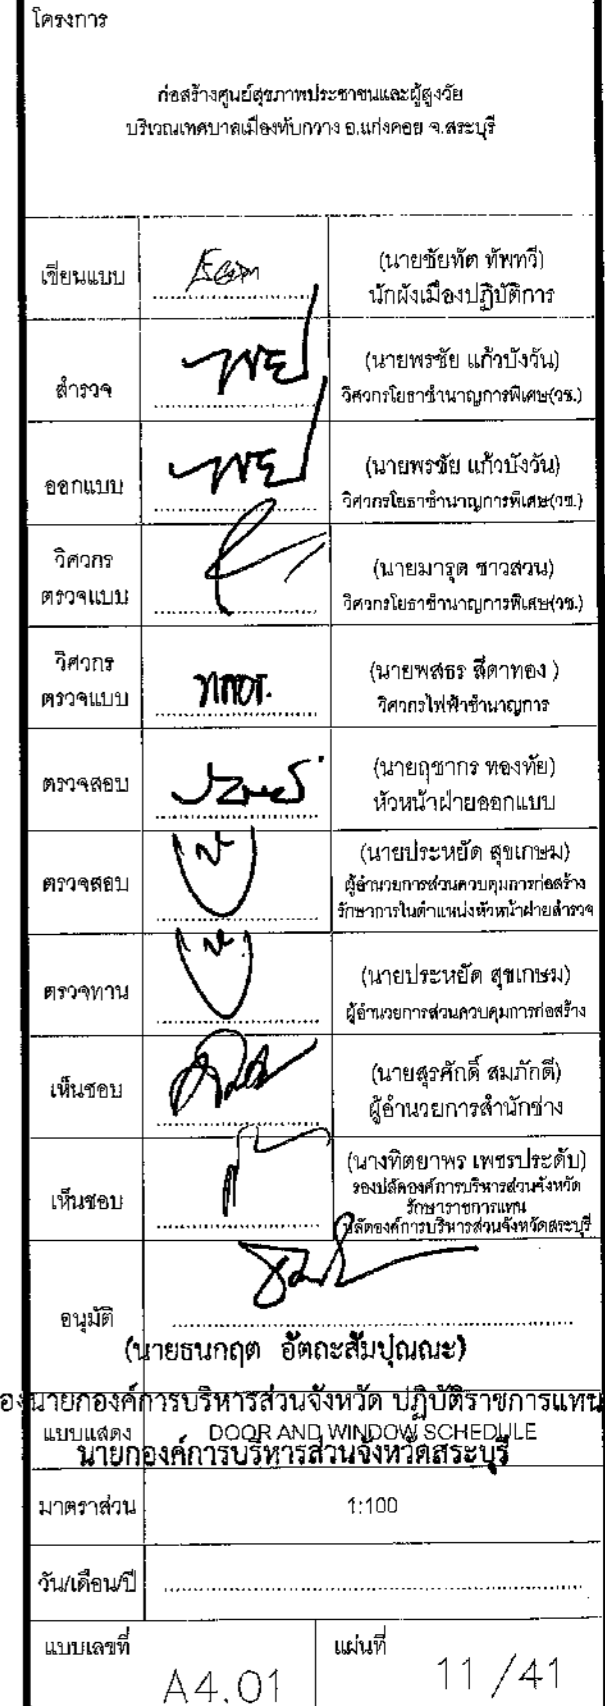 โครงการ
ก่อสร้างศูนย์สุขภาพประชาชนและผู้สูงวัย
บริเวณเทศบาลเมืองทับกวาง อ.แก่งคอย จ.สระบุรี
เขียนแบบ
(นายชัยทัต ทัพทวี)
นักผังเมืองปฏิบัติการ
สำรวจ
(นายพรชัย แก้วบังวัน)
วิศวกรโยธาชำนาญการพิเศษ(วช.)
ออกแบบ
(นายพรชัย แก้วบังวัน)
วิศวกรโยธาชำนาญการพิเศษ(วช.)
วิศวกร
ตรวจแบบ
(นายมารุต ชาวสวน)
วิศวกรโยธาชำนาญการพิเศษ(วช.)
วิศวกร
ตรวจแบบ
(นายพสธร สีดาทอง )
วิศวกรไฟฟ้าชำนาญการ
ตรวจสอบ
(นายฤชากร ทองทัย)
หัวหน้าฝ่ายออกแบบ
ตรวจสอบ
(นายประหยัด สุขเกษม)
ผู้อำนวยการส่วนควบคุมการก่อสร้าง
รักษาการในตำแหน่งหัวหน้าฝ่ายสำรวจ
ตรวจทาน
(นายประหยัด สุขเกษม)
ผู้อำนวยการส่วนควบคุมการก่อสร้าง
เห็นชอบ
(นายสุรศักดิ์ สมภักดี)
ผู้อำนวยการสำนักช่าง
เห็นชอบ
(นางทิตยาพร เพชรประดับ)
รองปลัดองค์การบริหารส่วนจังหวัด
รักษาราชการแทน
ปลัดองค์การบริหารส่วนจังหวัดสระบุรี
อนุมัติ
(นายธนกฤต อัตถะสัมปุณณะ)
องนายกองค์การบริหารส่วนจังหวัด ปฏิบัติราชการแทน
แบบแสดง DOOR AND WINDOW SCHEDULE
นายกองค์การบริหารส่วนจังหวัดสระบุรี
มาตราส่วน 1:100
วัน/เดือน/ปี
แบบเลขที่ A4.01
แผ่นที่ 11/41